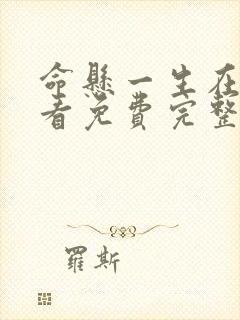 命懸一生在
看免費完整
羅斯